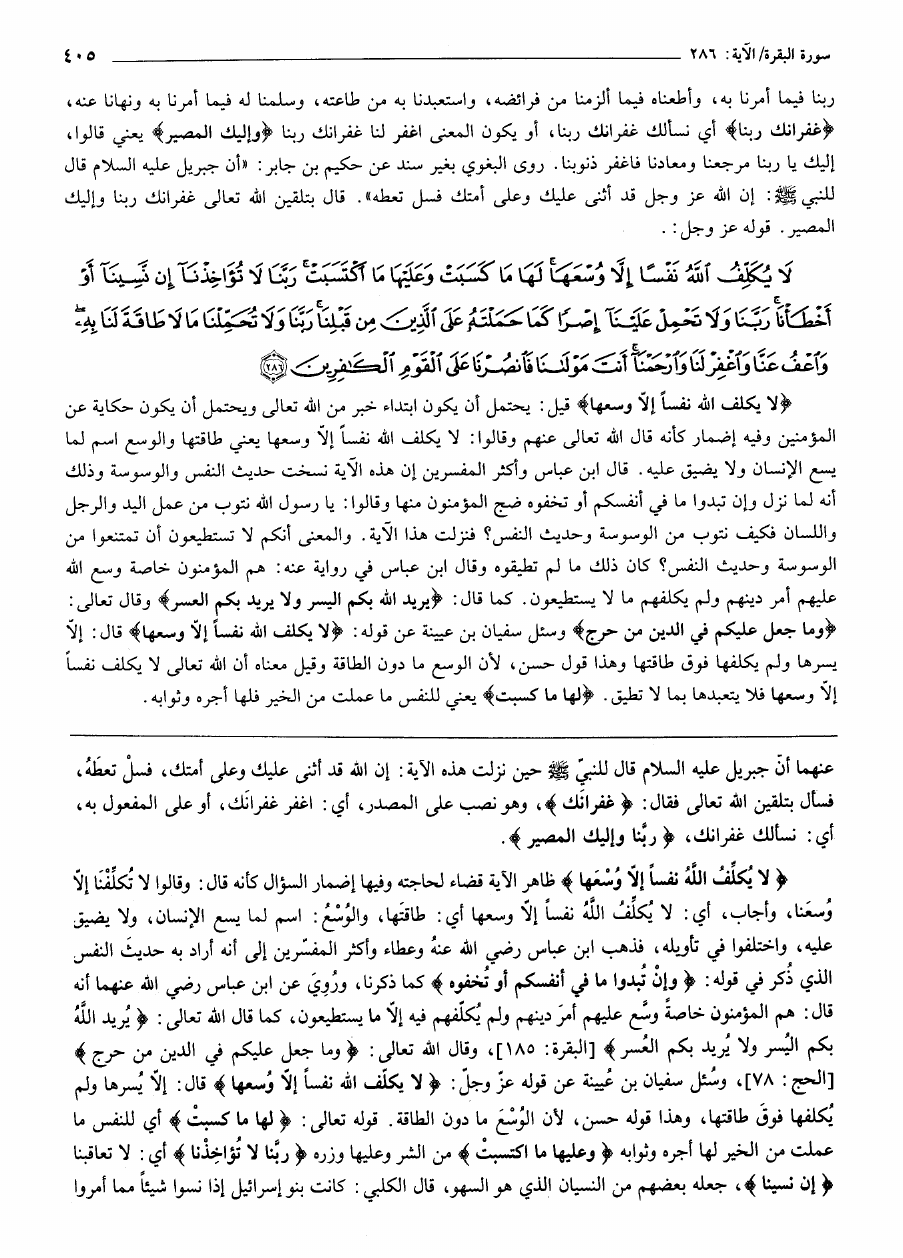 سورة البقرة/ الآية: ٢٨٦ ٤٠٥
ربنا فيما أمرنا به، وأطعناه فيما ألزمنا من فرائضه، واستعبدنا به من طاعته، وسلمنا له فيما أمرنا به ونهانا عنه،
﴿غفرانك ربنا﴾ أي نسألك غفرانك ربنا، أو يكون المعنى اغفر لنا غفرانك ربنا ﴿وإليك المصير﴾ يعني قالوا،
إليك يا ربنا مرجعنا ومعادنا فاغفر ذنوبنا. روى البغوي بغير سند عن حكيم بن جابر: «أن جبريل عليه السلام قال
للنبي ﷺ: إن الله عز وجل قد أثنى عليك وعلى أمتك فسل تعطه». قال بتلقين الله تعالى غفرانك ربنا وإليك
المصير. قوله عز وجل: .
لَا يُكَلِّفُ ٱللَّهُ نَفْسًا إِلَّا وُسْعَهَا ۚ لَهَا مَا كَسَبَتْ وَعَلَيْهَا مَا ٱكْتَسَبَتْ ۗ رَبَّنَا لَا تُؤَاخِذْنَآ إِن نَّسِينَآ أَوْ
أَخْطَأْنَا ۚ رَبَّنَا وَلَا تَحْمِلْ عَلَيْنَآ إِصْرًا كَمَا حَمَلْتَهُۥ عَلَى ٱلَّذِينَ مِن قَبْلِنَا ۚ رَبَّنَا وَلَا تُحَمِّلْنَا مَا لَا طَاقَةَ لَنَا بِهِۦ ۖ
وَٱعْفُ عَنَّا وَٱغْفِرْ لَنَا وَٱرْحَمْنَآ ۚ أَنتَ مَوْلَىٰنَا فَٱنصُرْنَا عَلَى ٱلْقَوْمِ ٱلْكَٰفِرِينَ ﴿٢٨٦﴾
﴿لا يكلف الله نفساً إلّا وسعها﴾ قيل: يحتمل أن يكون ابتداء خبر من الله تعالى ويحتمل أن يكون حكاية عن
المؤمنين وفيه إضمار كأنه قال الله تعالى عنهم وقالوا: لا يكلف الله نفساً إلّا وسعها يعني طاقتها والوسع اسم لما
يسع الإنسان ولا يضيق عليه. قال ابن عباس وأكثر المفسرين إن هذه الآية نسخت حديث النفس والوسوسة وذلك
أنه لما نزل وإن تبدوا ما في أنفسكم أو تخفوه ضج المؤمنون منها وقالوا: يا رسول الله نتوب من عمل اليد والرجل
واللسان فكيف نتوب من الوسوسة وحديث النفس؟ فنزلت هذا الآية. والمعنى أنكم لا تستطيعون أن تمتنعوا من
الوسوسة وحديث النفس؟ كان ذلك ما لم تطيقوه وقال ابن عباس في رواية عنه: هم المؤمنون خاصة وسع الله
عليهم أمر دينهم ولم يكلفهم ما لا يستطيعون. كما قال: ﴿يريد الله بكم اليسر ولا يريد بكم العسر﴾ وقال تعالى:
﴿وما جعل عليكم في الدين من حرج﴾ وسئل سفيان بن عيينة عن قوله: ﴿لا يكلف الله نفساً إلّا وسعها﴾ قال: إلّا
يسرها ولم يكلفها فوق طاقتها وهذا قول حسن، لأن الوسع ما دون الطاقة وقيل معناه أن الله تعالى لا يكلف نفساً
إلّا وسعها فلا يتعبدها بما لا تطيق. ﴿لها ما كسبت﴾ يعني للنفس ما عملت من الخير فلها أجره وثوابه.
عنهما أنّ جبريل عليه السلام قال للنبيّ ﷺ حين نزلت هذه الآية: إن الله قد أثنى عليك وعلى أمتك، فسلْ تعطَهُ،
فسأل بتلقين الله تعالى فقال: ﴿ غفرانَك ﴾، وهو نصب على المصدر، أي: اغفر غفرانَك، أو على المفعول به،
أي: نسألك غفرانك، ﴿ ربَّنا وإليك المصير ﴾.
﴿ لا يُكلِّفُ اللَّهُ نفساً إلّا وُسْعَها ﴾ ظاهر الآية قضاء لحاجته وفيها إضمار السؤال كأنه قال: وقالوا لا تُكلِّفْنَا إلّا
وُسعَنا، وأجاب، أي: لا يُكلِّفُ اللَّهُ نفساً إلّا وسعها أي: طاقتَها، والوُسْعُ: اسم لما يسع الإنسان، ولا يضيق
عليه، واختلفوا في تأويله، فذهب ابن عباس رضي الله عنهُ وعطاء وأكثر المفسّرين إلى أنه أراد به حديثَ النفس
الذي ذُكر في قوله: ﴿ وإنْ تُبدوا ما في أنفسكم أو تُخفوه ﴾ كما ذكرنا، ورُوِيَ عن ابن عباس رضي الله عنهما أنه
قال: هم المؤمنون خاصةً وسَّع عليهم أمرَ دينهم ولم يُكلّفهم فيه إلّا ما يستطيعون، كما قال الله تعالى: ﴿ يُريد اللَّهُ
بكم اليُسر ولا يُريد بكم العُسر ﴾ [البقرة: ١٨٥]، وقال الله تعالى: ﴿ وما جعل عليكم في الدين من حرج ﴾
[الحج: ٧٨]، وسُئل سفيان بن عُيينة عن قوله عزّ وجلّ: ﴿ لا يكلّف الله نفساً إلّا وُسعها ﴾ قال: إلّا يُسرها ولم
يُكلفها فوقَ طاقتها، وهذا قوله حسن، لأن الوُسْعَ ما دون الطاقة. قوله تعالى: ﴿ لها ما كسبتْ ﴾ أي للنفس ما
عملت من الخير لها أجره وثوابه ﴿ وعليها ما اكتسبتْ ﴾ من الشر وعليها وزره ﴿ ربَّنا لا تُؤاخِذْنا ﴾ أي: لا تعاقبنا
﴿ إن نسينا ﴾، جعله بعضهم من النسيان الذي هو السهو، قال الكلبي: كانت بنو إسرائيل إذا نسوا شيئاً مما أمروا